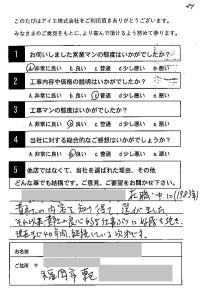 このたびはアイエ株式会社をご利用頂きありがとうございます。
みなさまのご意見をもとに、より喜んで頂けるよう努めて参ります。
1 お伺いしました営業マンの態度はいかがでしたか?
A.非常に良い B.良い C.普通 d.少し悪い e.悪い
2 工事内容や価格の説明はいかがでしたか?
A.非常に良い B.良い C.普通 d.少し悪い e.悪い
3 工事マンの態度はいかがでしたか?
A.非常に良い B.良い C.普通 d.少し悪い e.悪い
4 当社に対する総合的なご感想はいかがでしょうか?
A.非常に良い B.良い C.普通 d.少し悪い e.悪い
5 他店ではなくて、当社を選ばれた理由、その他
どんな事でも結構です。ご意見、ご要望をお聞かせ下さい。
在職中に
貴社の内容を知り得て
それ以来貴社の良心的な仕事ぶりに
現在まで40年間
お名前
ご住所 〒
福岡市